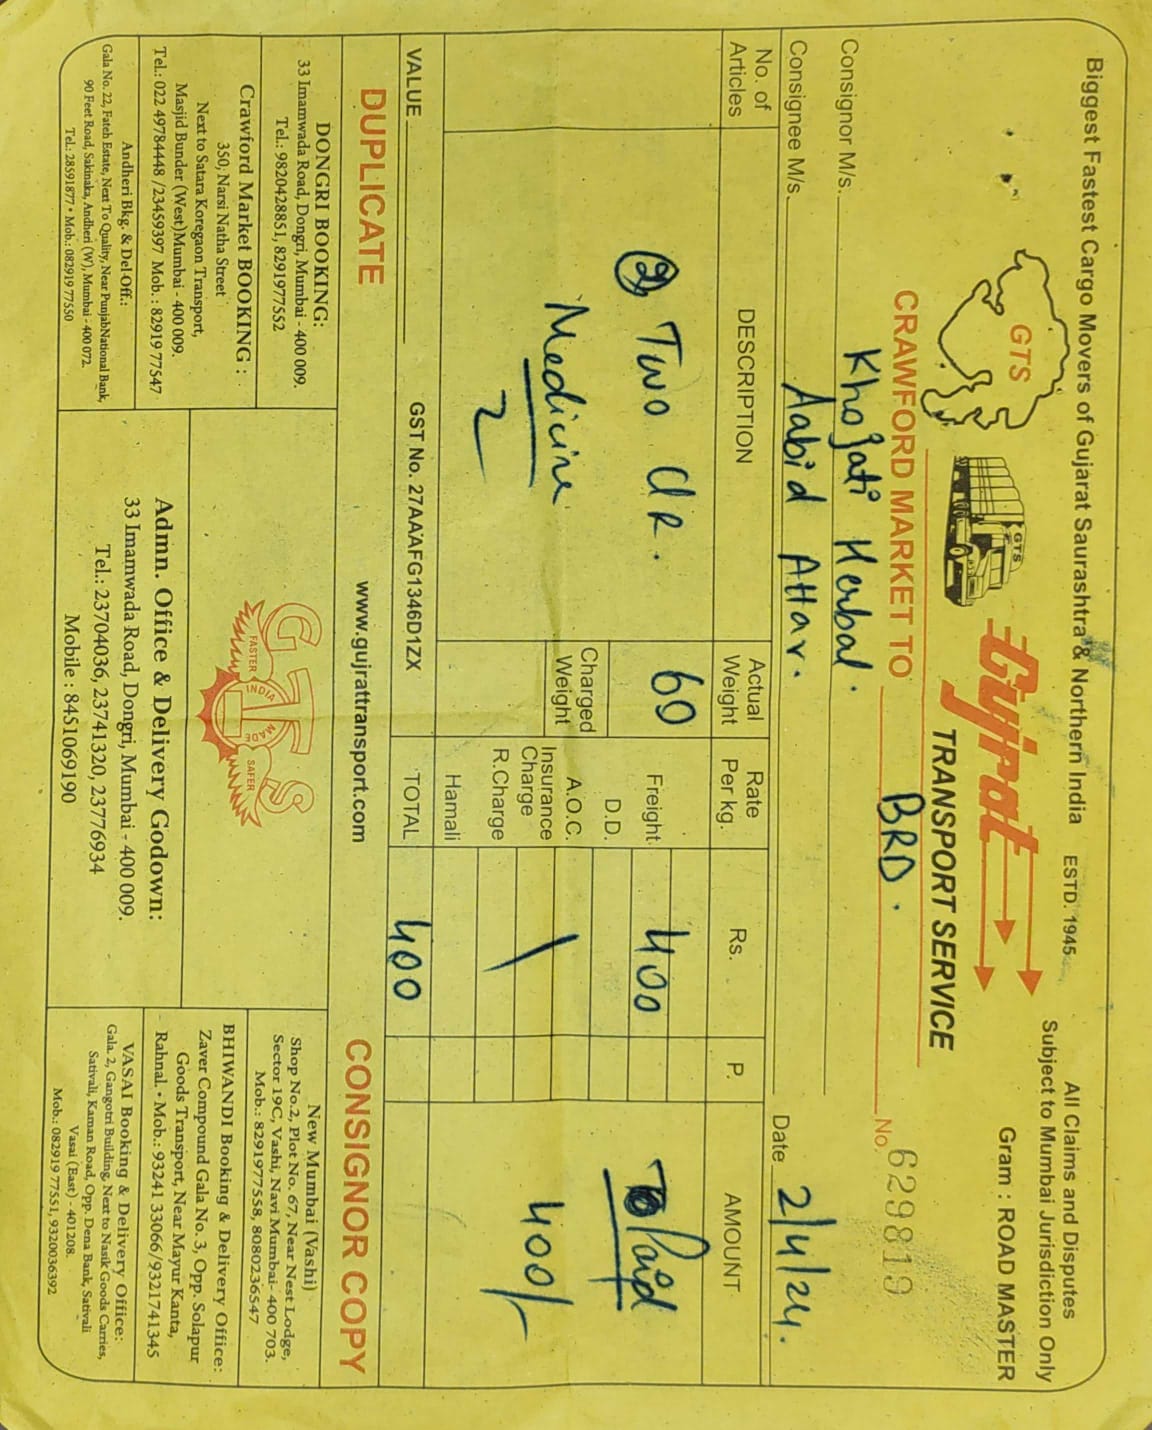 Biggest Fastest Cargo Movers of Gujarat Saurashtra & Northern India
ESTD. 1945
All Claims and Disputes
Subject to Mumbai Jurisdiction Only
Gram : ROAD MASTER
GTS
GTS
Gujrat
TRANSPORT SERVICE
CRAWFORD MARKET TO BRD.
No. 629819
Consignor M/s. Khojati Herbal.
Consignee M/s. Aabid Attar.
Date 2/4/24.
No. of Articles
DESCRIPTION
Actual Weight
Rate Per kg.
Rs.
P.
AMOUNT
② Two
Medicine
2
60
Charged Weight
Freight 400
D.D.
A.O.C.
Insurance Charge
R.Charge
Hamali
TOTAL 400
To Paid
400/-
VALUE
GST No. 27AAAFG1346D1ZX
DUPLICATE
www.gujrattransport.com
CONSIGNOR COPY
DONGRI BOOKING:
33 Imamwada Road, Dongri, Mumbai - 400 009.
Tel.: 9820428851, 8291977552
Crawford Market BOOKING :
350, Narsi Natha Street
Next to Satara Koregaon Transport,
Masjid Bunder (West)Mumbai - 400 009.
Tel.: 022 49784448 /23459397 Mob. : 82919 77547
Andheri Bkg. & Del Off.:
Gala No. 22, Fateh Estate, Next To Quality, Near PunjabNational Bank,
90 Feet Road, Sakinaka, Andheri (W), Mumbai - 400 072.
Tel.: 28591877 • Mob.: 082919 77550
GTS
FASTER
INDIA
MADE
SAFER
Admn. Office & Delivery Godown:
33 Imamwada Road, Dongri, Mumbai - 400 009.
Tel.: 23704036, 23741320, 23776934
Mobile : 8451069190
New Mumbai (Vashi)
Shop No.2, Plot No. 67, Near Nest Lodge,
Sector 19C, Vashi, Navi Mumbai- 400 703.
Mob.: 8291977558, 8080236547
BHIWANDI Booking & Delivery Office:
Zaver Compound Gala No. 3, Opp. Solapur
Goods Transport, Near Mayur Kanta,
Rahnal. • Mob.: 93241 33066/9321741345
VASAI Booking & Delivery Office:
Gala. 2, Gangotri Building, Next to Nasik Goods Carries,
Sativali, Kaman Road, Opp. Dena Bank, Sativali
Vasai (East) - 401208.
Mob.: 082919 77551, 9320036392